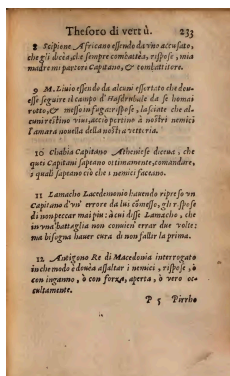 Thesoro di vertù. 233
8 Scipione Africano essendo da vno accusato,
che gli diceà, che sempre combatteà, rispose, mia
madre mi partorì Capitano, & combattitore.
9 M. Liuio essendo da alcuni essortato che doue
esse seguire il campo d'Hasdrubale da se homai
rotto, & messo in fuga: rispose, lasciate che al-
cuni restino viui, acciò portino à nostri nemici
l'amara nouella della nostra vettoria.
10 Chabia Capitano Atheniese diceua, che
quei Capitani sapeano ottimamente, comandare,
i quali sapeano ciò che i nemici faceano.
11 Lamacho Lacedemonio hauendo ripreso vn
Capitano d'vn' errore da lui cõmesso, gli rispose
di non peccar mai piu: à cui disse Lamacho, che
in vna battaglia non conuien errar due volte:
ma bisogna hauer cura di non fallir la prima.
12 Antigono Re di Macedonia interrogato
in che modo è douea assaltar i nemici, rispose, ò
con inganno, ò con forza, aperta, ò vero oc-
cultamente.
P 5 Pirrho